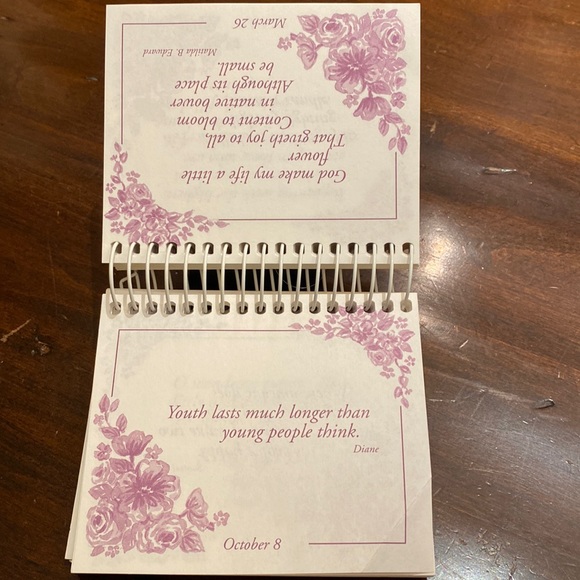 God make my life a little
flower
That giveth joy to all,
Content to bloom
in native bower
Although its place
be small.
Matilda B. Edward
March 26
Youth lasts much longer than
young people think.
Diane
October 8